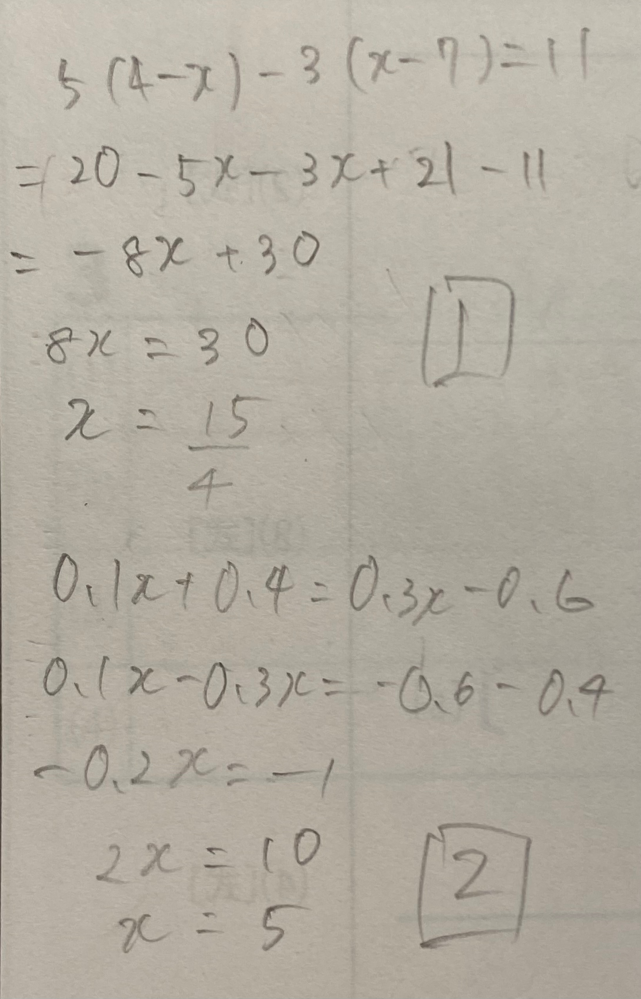 5(4-x)-3(x-7)=11
=20-5x-3x+21-11
=-8x+30
1
8x=30
x=15/4
0.1x+0.4=0.3x-0.6
0.1x-0.3x=-0.6-0.4
-0.2x=-1
2x=10
2
x=5